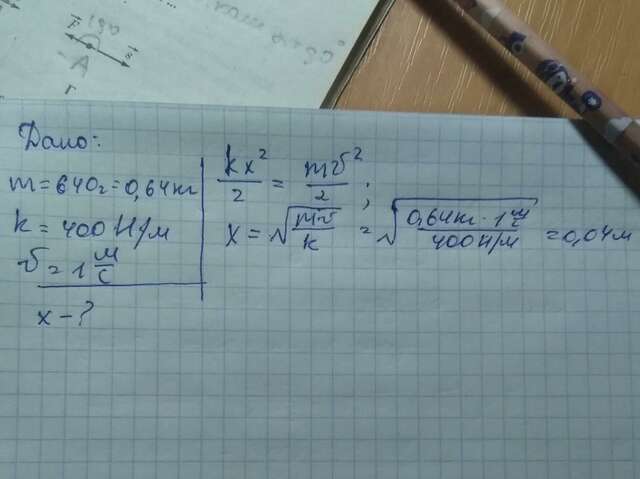 Дано:
m=640г=0,64кг
k=400Н/м
υ=1 м/с
x-?
kx²/2 = mυ²/2 ;
x=√(mυ/k) = √(0,64кг·1 м/с / 400Н/м) =0,04м